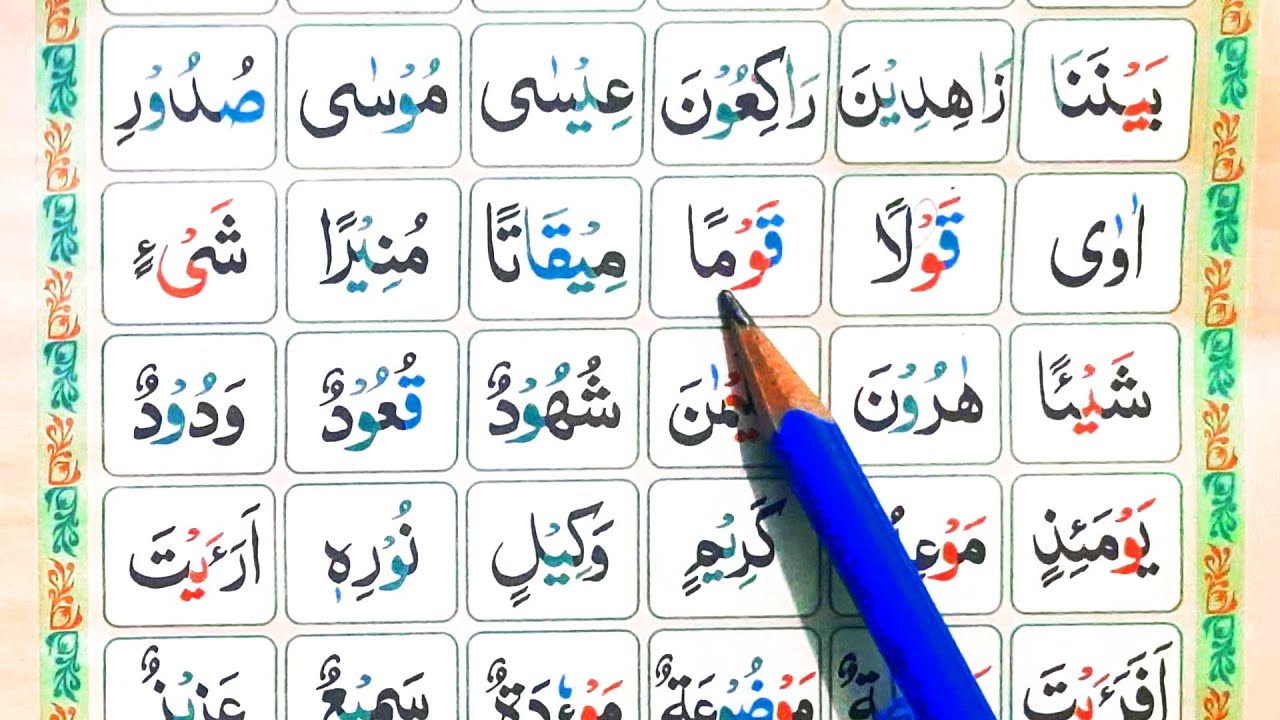 بَيْنَنَا زَاهِدِيْنَ رَاكِعُوْنَ عِيْسٰى مُوْسٰى صُدُوْرِ
اٰوٰى قَوْلًا قَوْمًا مِيْقَاتًا مُنِيْرًا شَىْءٍ
شَيْئًا هٰرُوْنَ شُهُوْدٌ قُعُوْدٌ وَدُوْدٌ
يَوْمَئِذٍ كَرِيْمٍ وَكِيْلٍ نُوْرِهٖ اَرَءَيْتَ
اَفَرَءَيْتَ مَوْضُوْعَةٌ مَوْءٗدَةٌ سَمِيْعٌ عَزِيْزٌ